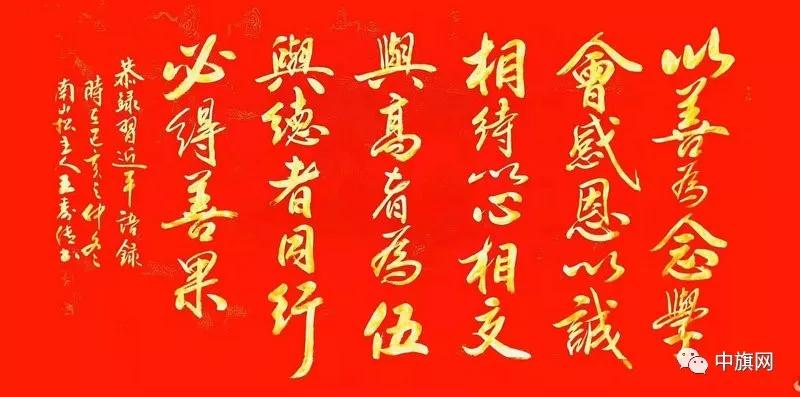 以善為念學
會感恩以誠
相待以心相交
與高者為伍
與德者同行
必得善果
恭錄習近平語錄
時在己亥之仲冬
南山松主人王壽德书
中旗网